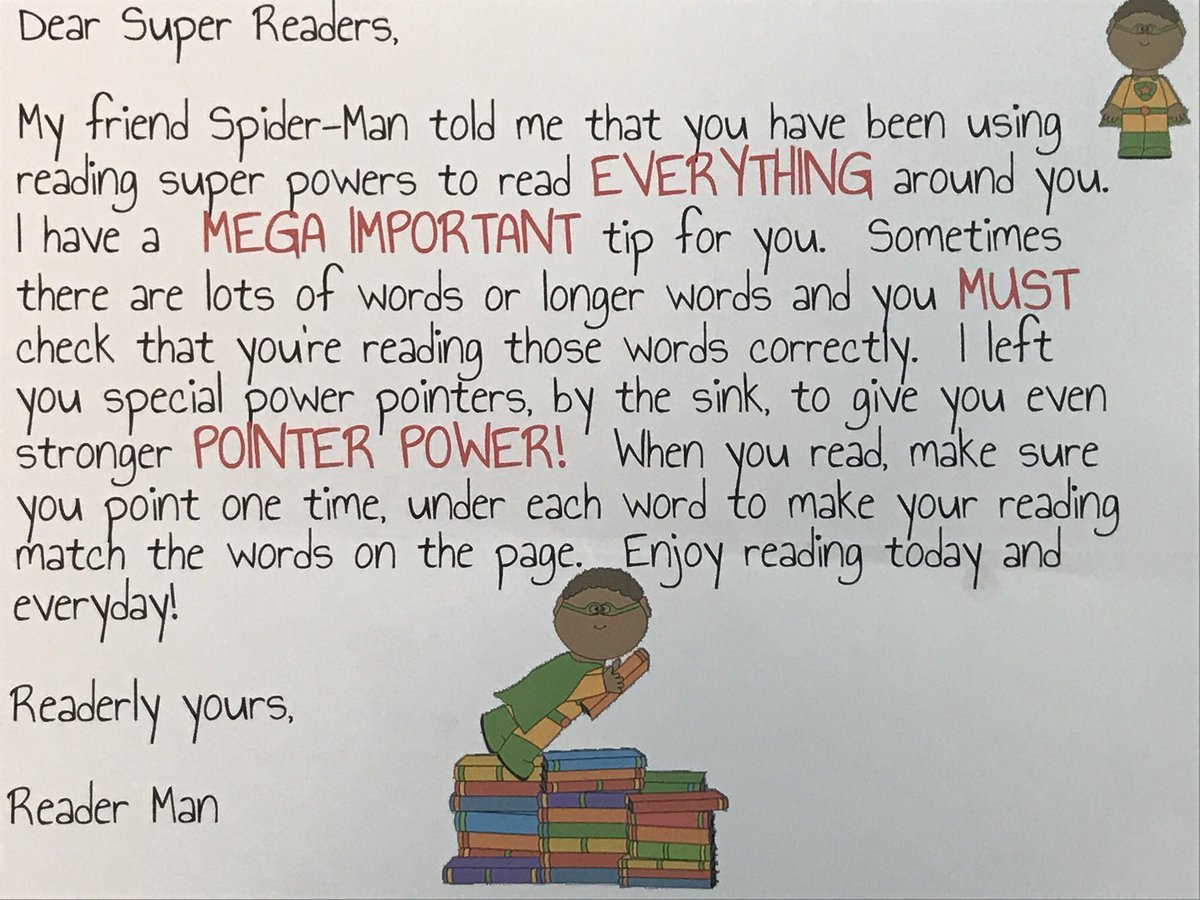 Dear Super Readers,
My friend Spider-Man told me that you have been using
reading super powers to read EVERYTHING around you.
I have a MEGA IMPORTANT tip for you. Sometimes
there are lots of words or longer words and you MUST
check that you're reading those words correctly. I left
you special power pointers, by the sink, to give you even
stronger POINTER POWER! When you read, make sure
you point one time, under each word to make your reading
match the words on the page. Enjoy reading today and
everyday!
Readerly yours,
Reader Man